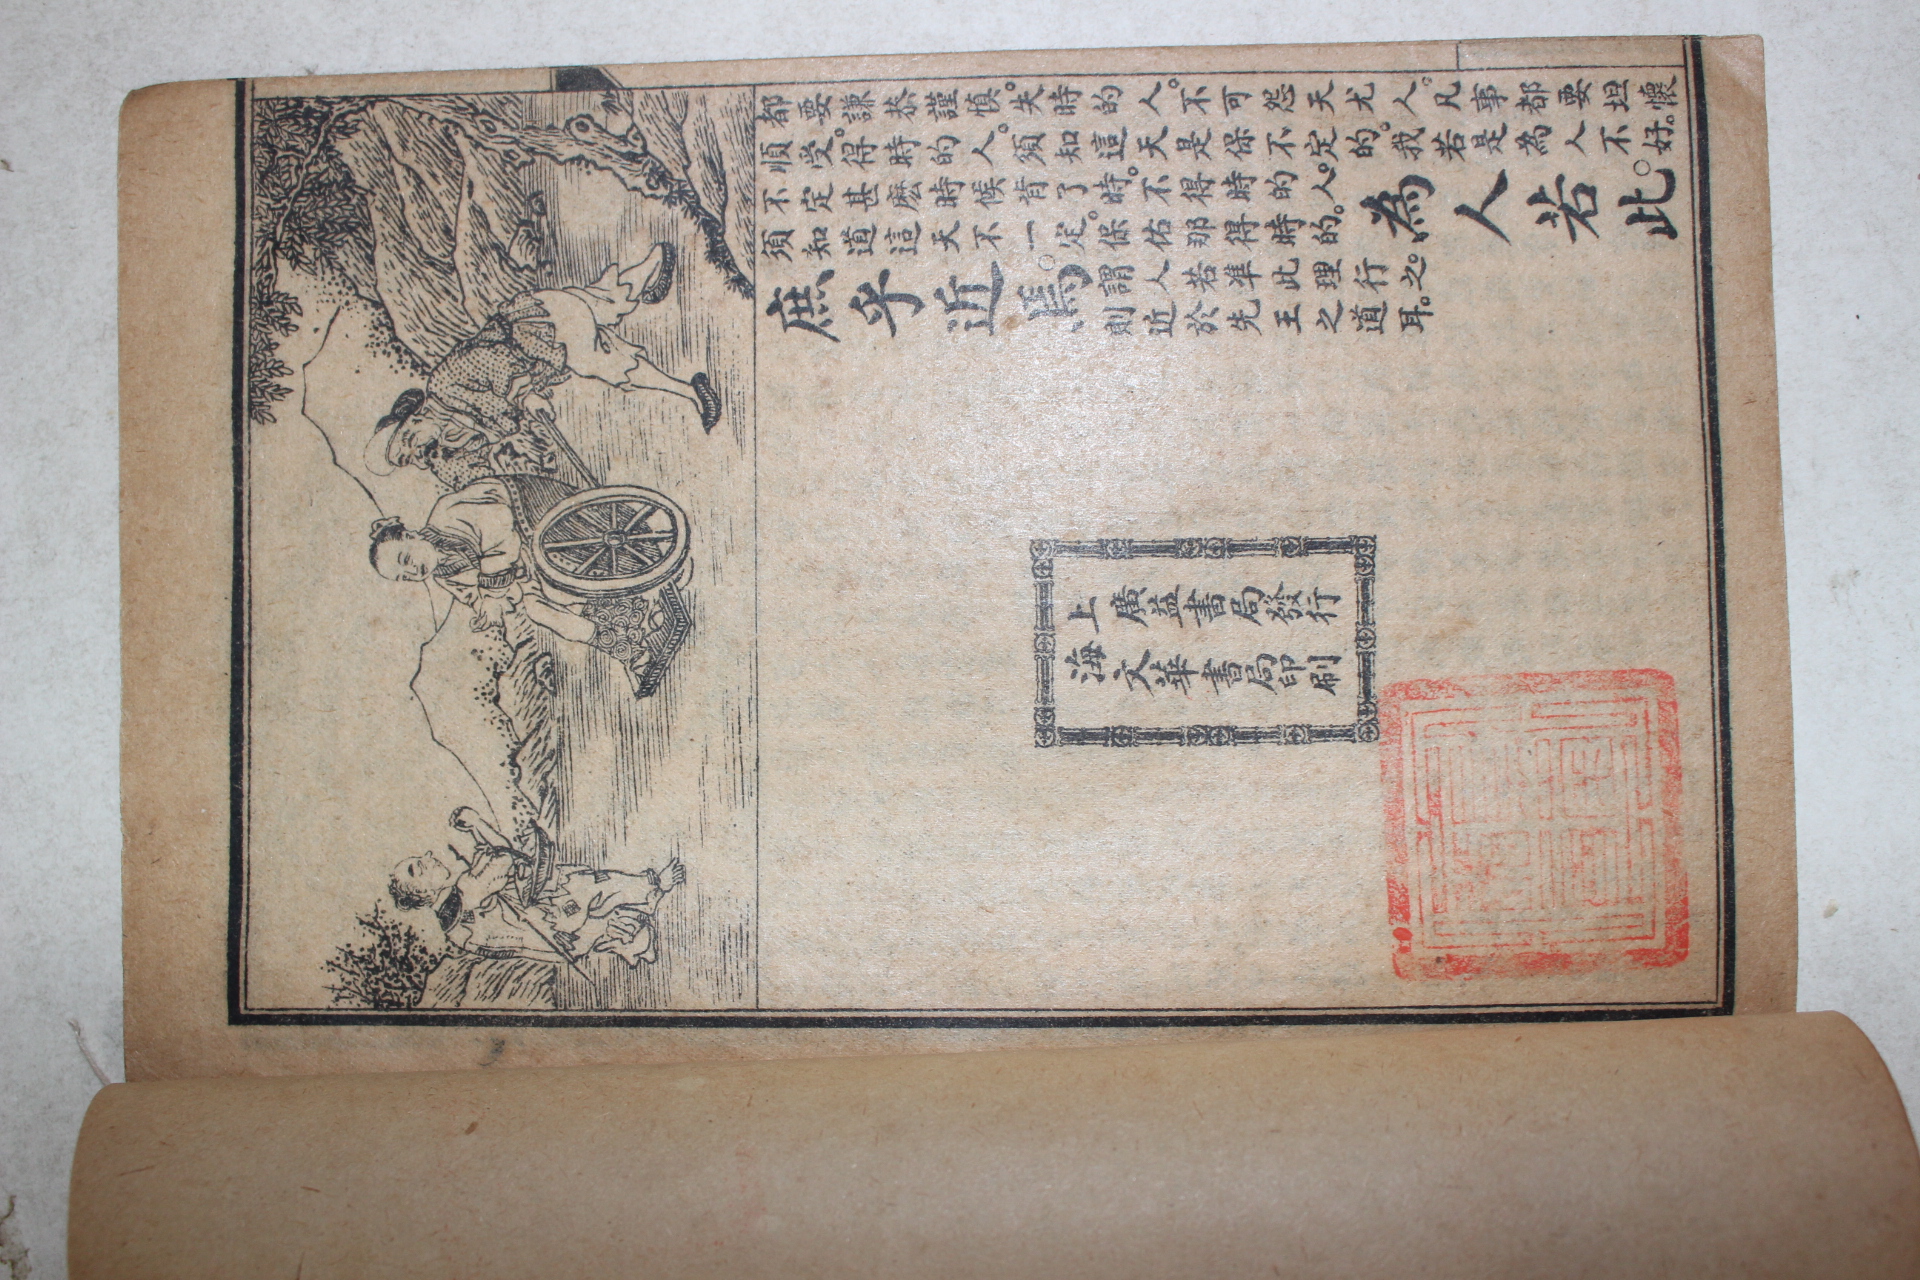 都要謙恭謹慎。失時的人。不可怨天尤人。凡事都要坦懷
順受。得時的人。須知這天是保不定的。我若是為人不好。
不定甚麽時候背了時。不得時的人。
須知道這天不一定。保佑那得時的。為人若此。
庶乎近焉。謂人若準此理行之。
則近於先王之道耳。
上海
廣益書局發行
文華書局印刷